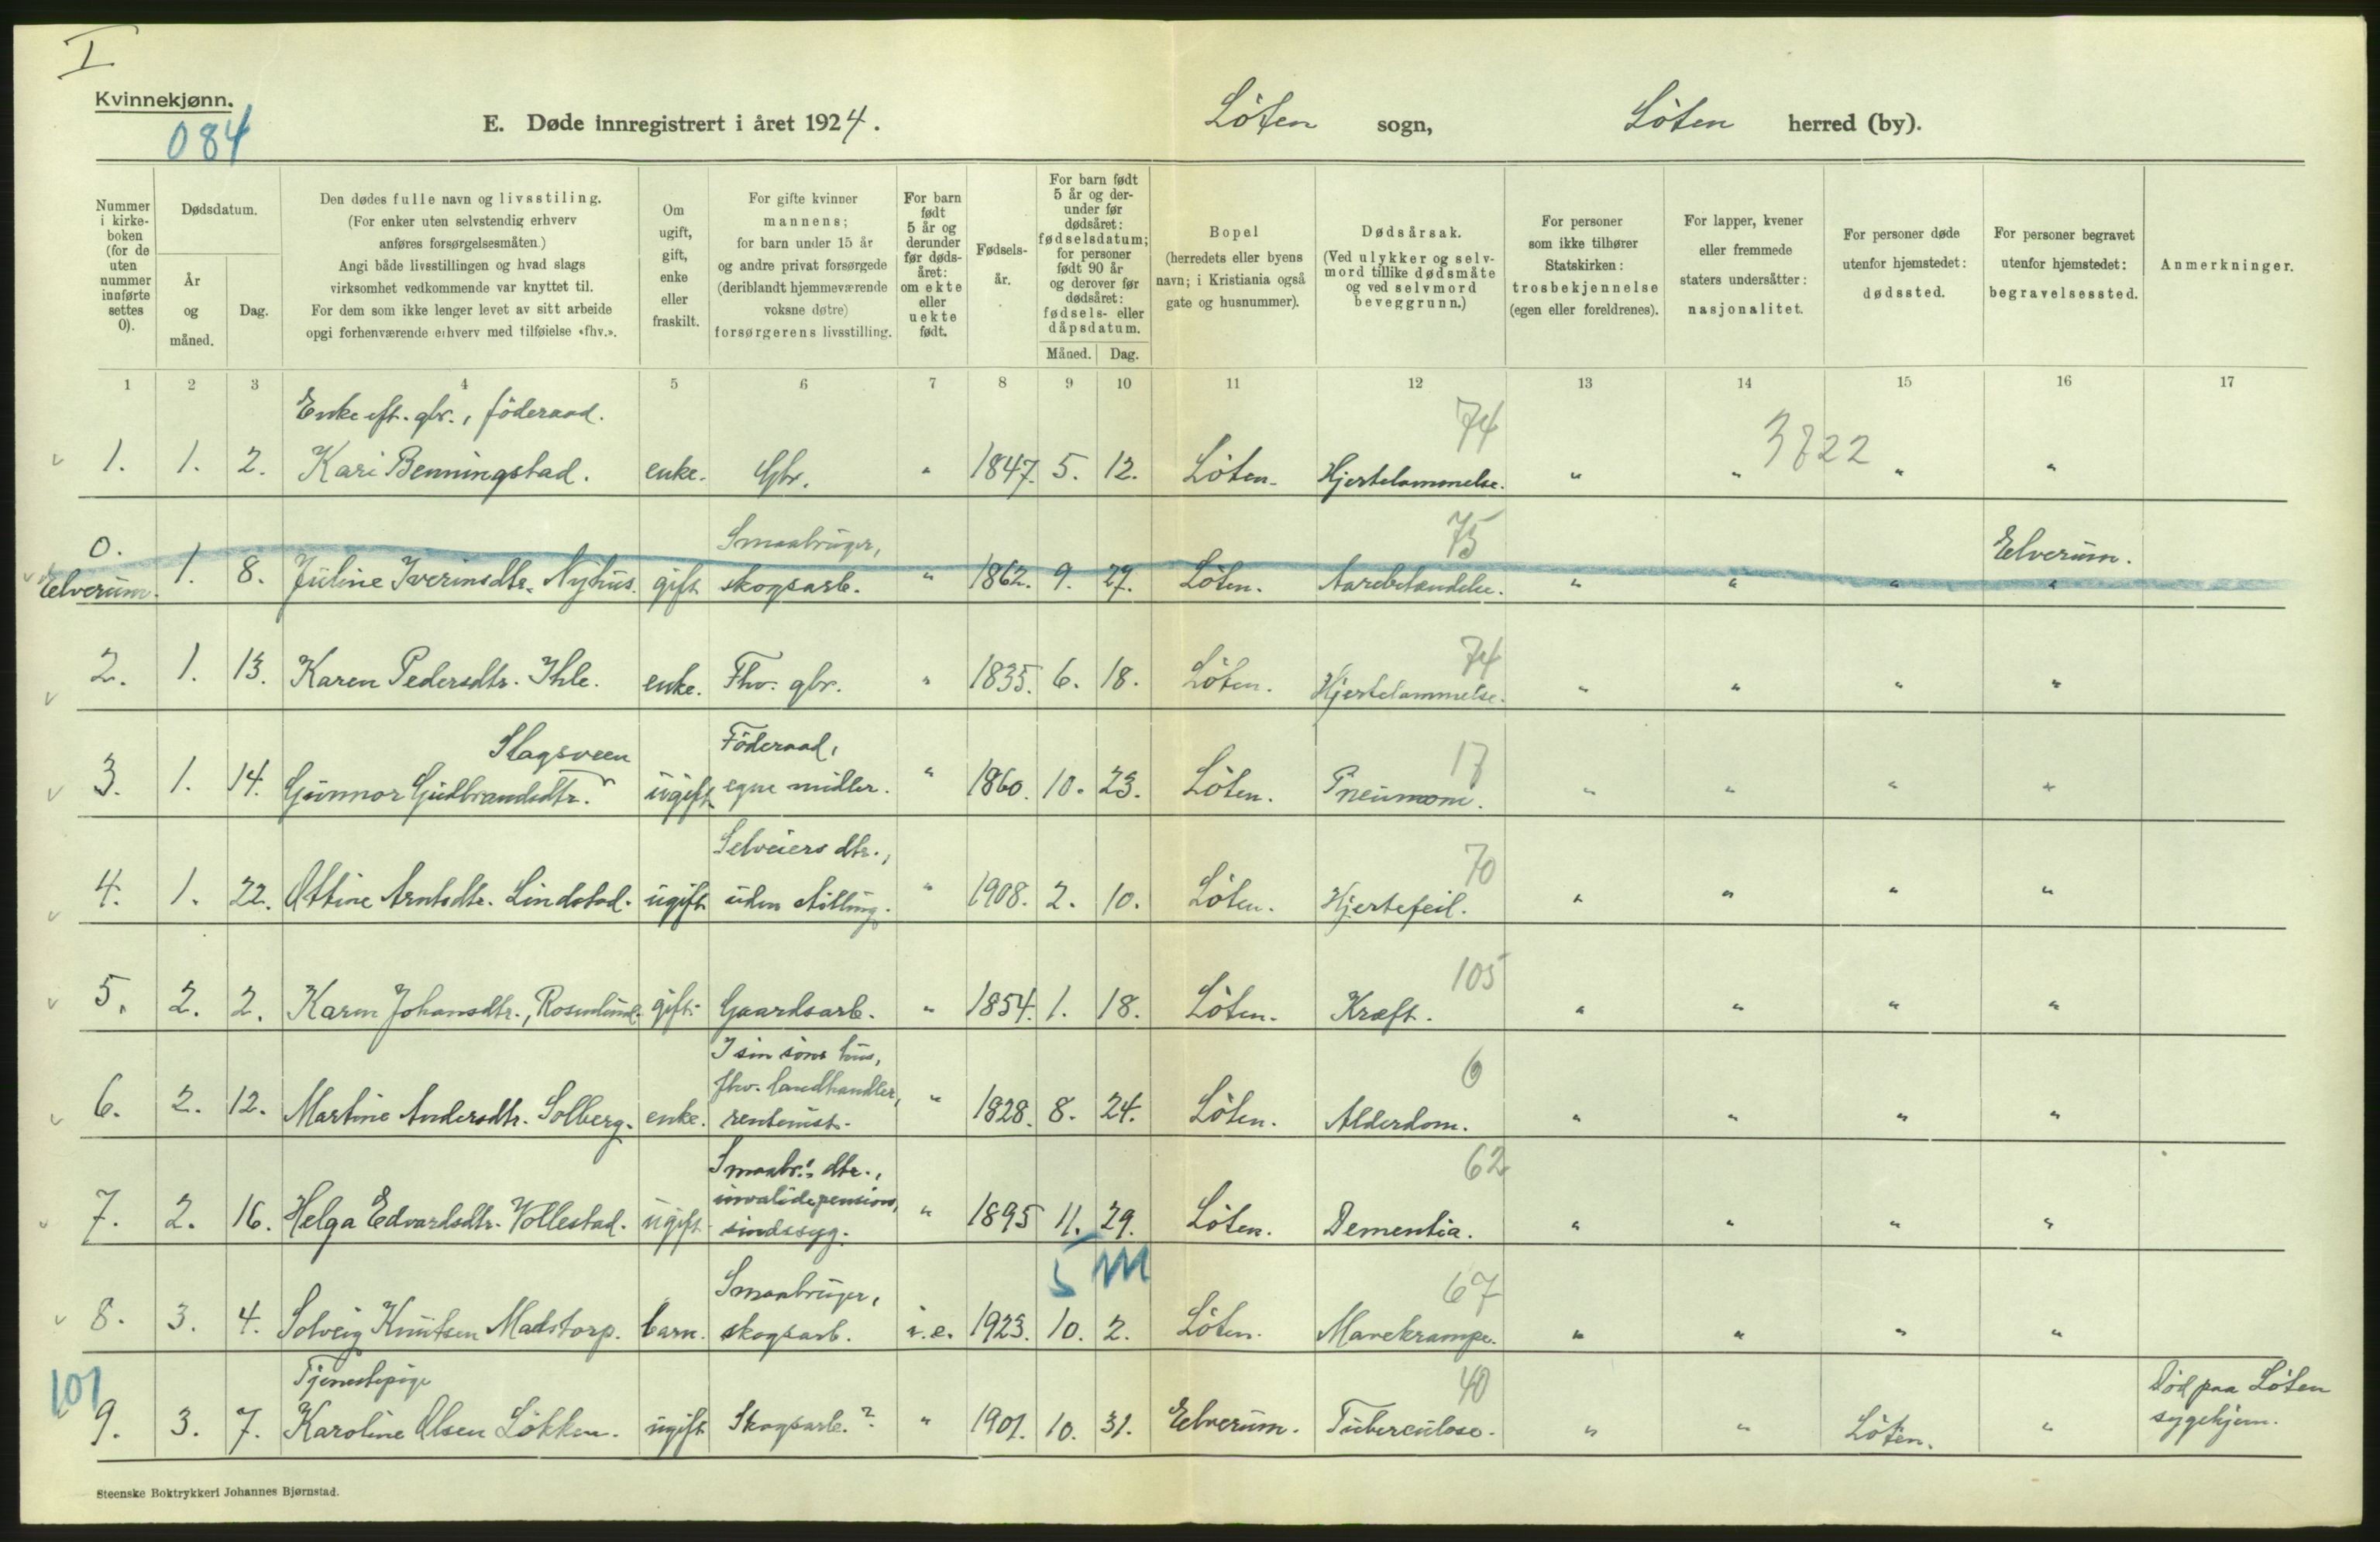 I
Kvinnekjønn.
084
E. Døde innregistrert i året 1924.
Löten sogn,
Löten herred (by).
Nummer i kirke-boken (for de uten nummer innførte settes 0).
Dødsdatum.
År og måned.
Dag.
Den dødes fulle navn og livsstiling.
(For enker uten selvstendig erhverv
anføres forsørgelsesmåten.)
Angi både livsstillingen og hvad slags
virksomhet vedkommende var knyttet til.
For dem som ikke lenger levet av sitt arbeide
opgi forhenværende erhverv med tilføielse «fhv.».
Om ugift, gift, enke eller fraskilt.
For gifte kvinner
mannens;
for barn under 15 år
og andre privat forsørgede
(deriblandt hjemmeværende
voksne døtre)
forsørgerens livsstilling.
For barn født 5 år og derunder før døds-året: om ekte eller uekte født.
Fødsels-år.
For barn født 5 år og der-under før dødsåret: fødselsdatum; for personer født 90 år og derover før dødsåret: fødsels- eller dåpsdatum.
Måned. Dag.
Bopel
(herredets eller byens
navn; i Kristiania også
gate og husnummer).
Dødsårsak.
(Ved ulykker og selv-
mord tillike dødsmåte
og ved selvmord
beveggrunn.)
For personer
som ikke tilhører
Statskirken:
trosbekjennelse
(egen eller foreldrenes).
For lapper, kvener
eller fremmede
staters undersåtter:
nasjonalitet.
For personer døde
utenfor hjemstedet:
dødssted.
For personer begravet
utenfor hjemstedet:
begravelsessted.
Anmerkninger.
1 2 3 4 5 6 7 8 9 10 11 12 13 14 15 16 17
Enke eft. gbr., föderaad. 74 3822
1. 1. 2. Kari Benningstad. enke. Gbr. " 1847. 5. 12. Löten. Hjertelammelse. " " " "
0. Smaabruger, 75 Elverum.
Elverum. 1. 8. Juline Iverinsdtr. Nyhus. gift skogsarb. " 1862. 9. 27. Löten. Aarebetændelse. " " " "
74
2. 1. 13. Karen Pedersdtr. Ihle. enke. Fhv. gbr. " 1835. 6. 18. Löten. Hjertelammelse. " " " "
Slagsveen Föderaad, 17
3. 1. 14. Gunnor Gudbrandsdtr. ugift egne midler. " 1860. 10. 23. Löten. Pneumoni. " " " "
Selveiers dtr., 70
4. 1. 22. Ottine Arntsdtr. Lindstad. ugift uden stilling. " 1908. 2. 10. Löten. Hjertefeil. " " " "
105
5. 2. 2. Karen Johansdtr., Rosenlund. gift. Gaardsarb. " 1854. 1. 18. Löten. Kræft. " " " "
I sin söns hus,
fhv. landhandler, 6
6. 2. 12. Martine Andersdtr. Solberg. enke. rentenist. " 1828. 8. 24. Löten. Alderdom. " " " "
Smaabr.s dtr., 62
invalidepension,
7. 2. 16. Helga Edvardsdtr. Vollestad. ugift sindssyg. " 1895 11. 29. Löten. Dementia. " " " "
5 m
Smaabruger, 67
8. 3. 4. Solveig Knutsen Madstorp. barn. skogsarb. i.e. 1923. 10. 2. Löten. Mavekrampe. " " " "
101 Tjenestepige 40 Död paa Löten
9. 3. 7. Karoline Olsen Lökken. ugift Skogsarb.? " 1901. 10. 31. Elverum. Tuberculose. " " Löten. " sygehjem.
Steenske Boktrykkeri Johannes Bjørnstad.